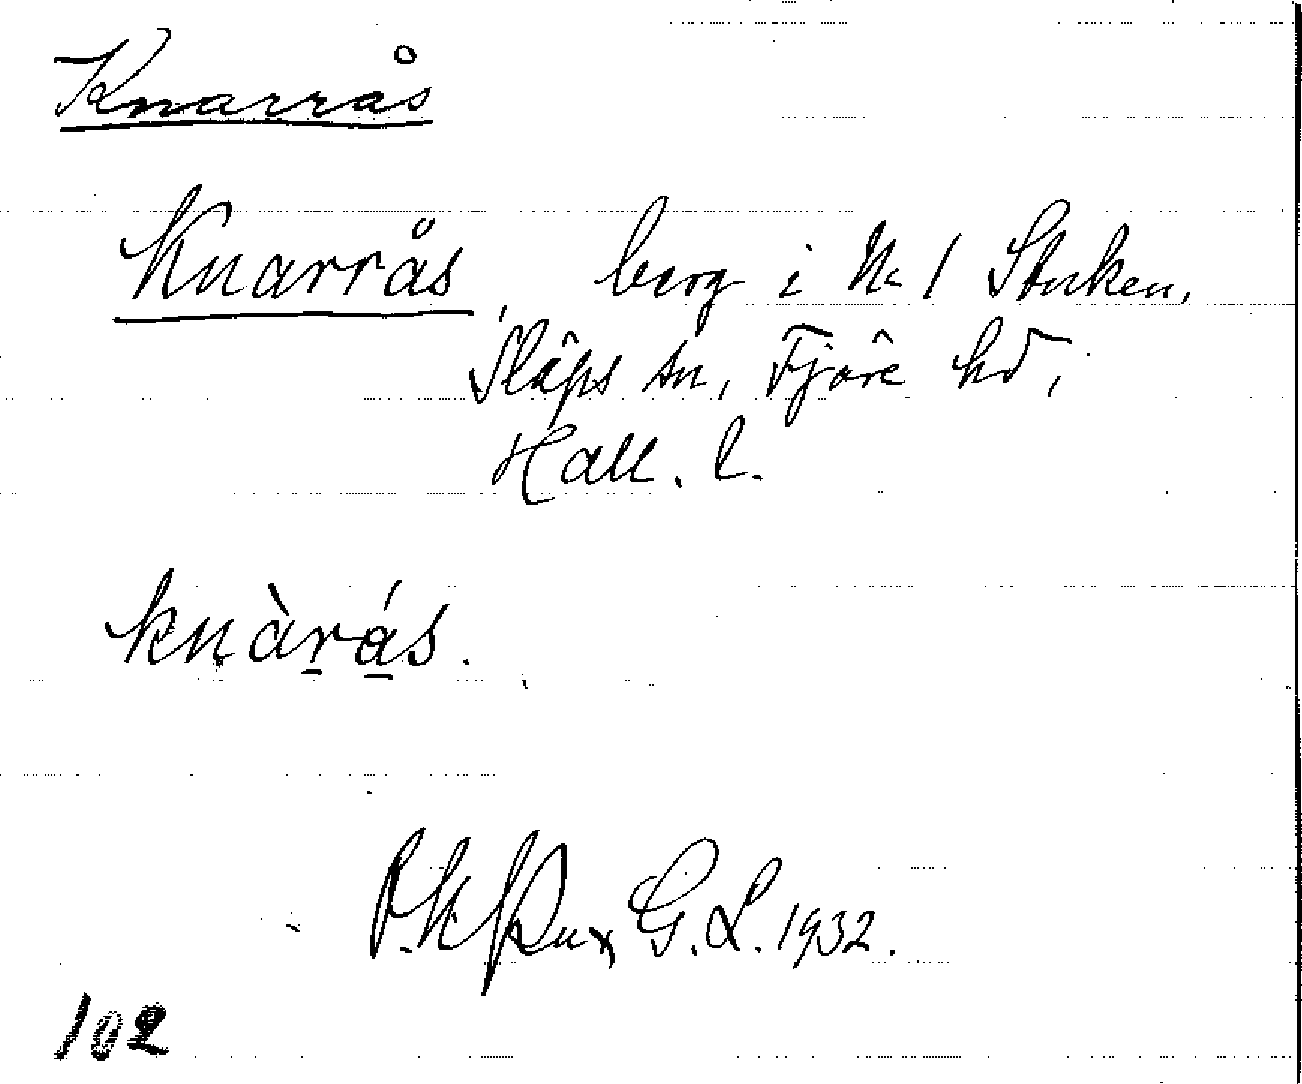 Knarrås
Knarrås, berg i N. / Stocken,
Släps sn, Fjäre hd,
Hall. l.
knàrás.
G. L. 1932.
102